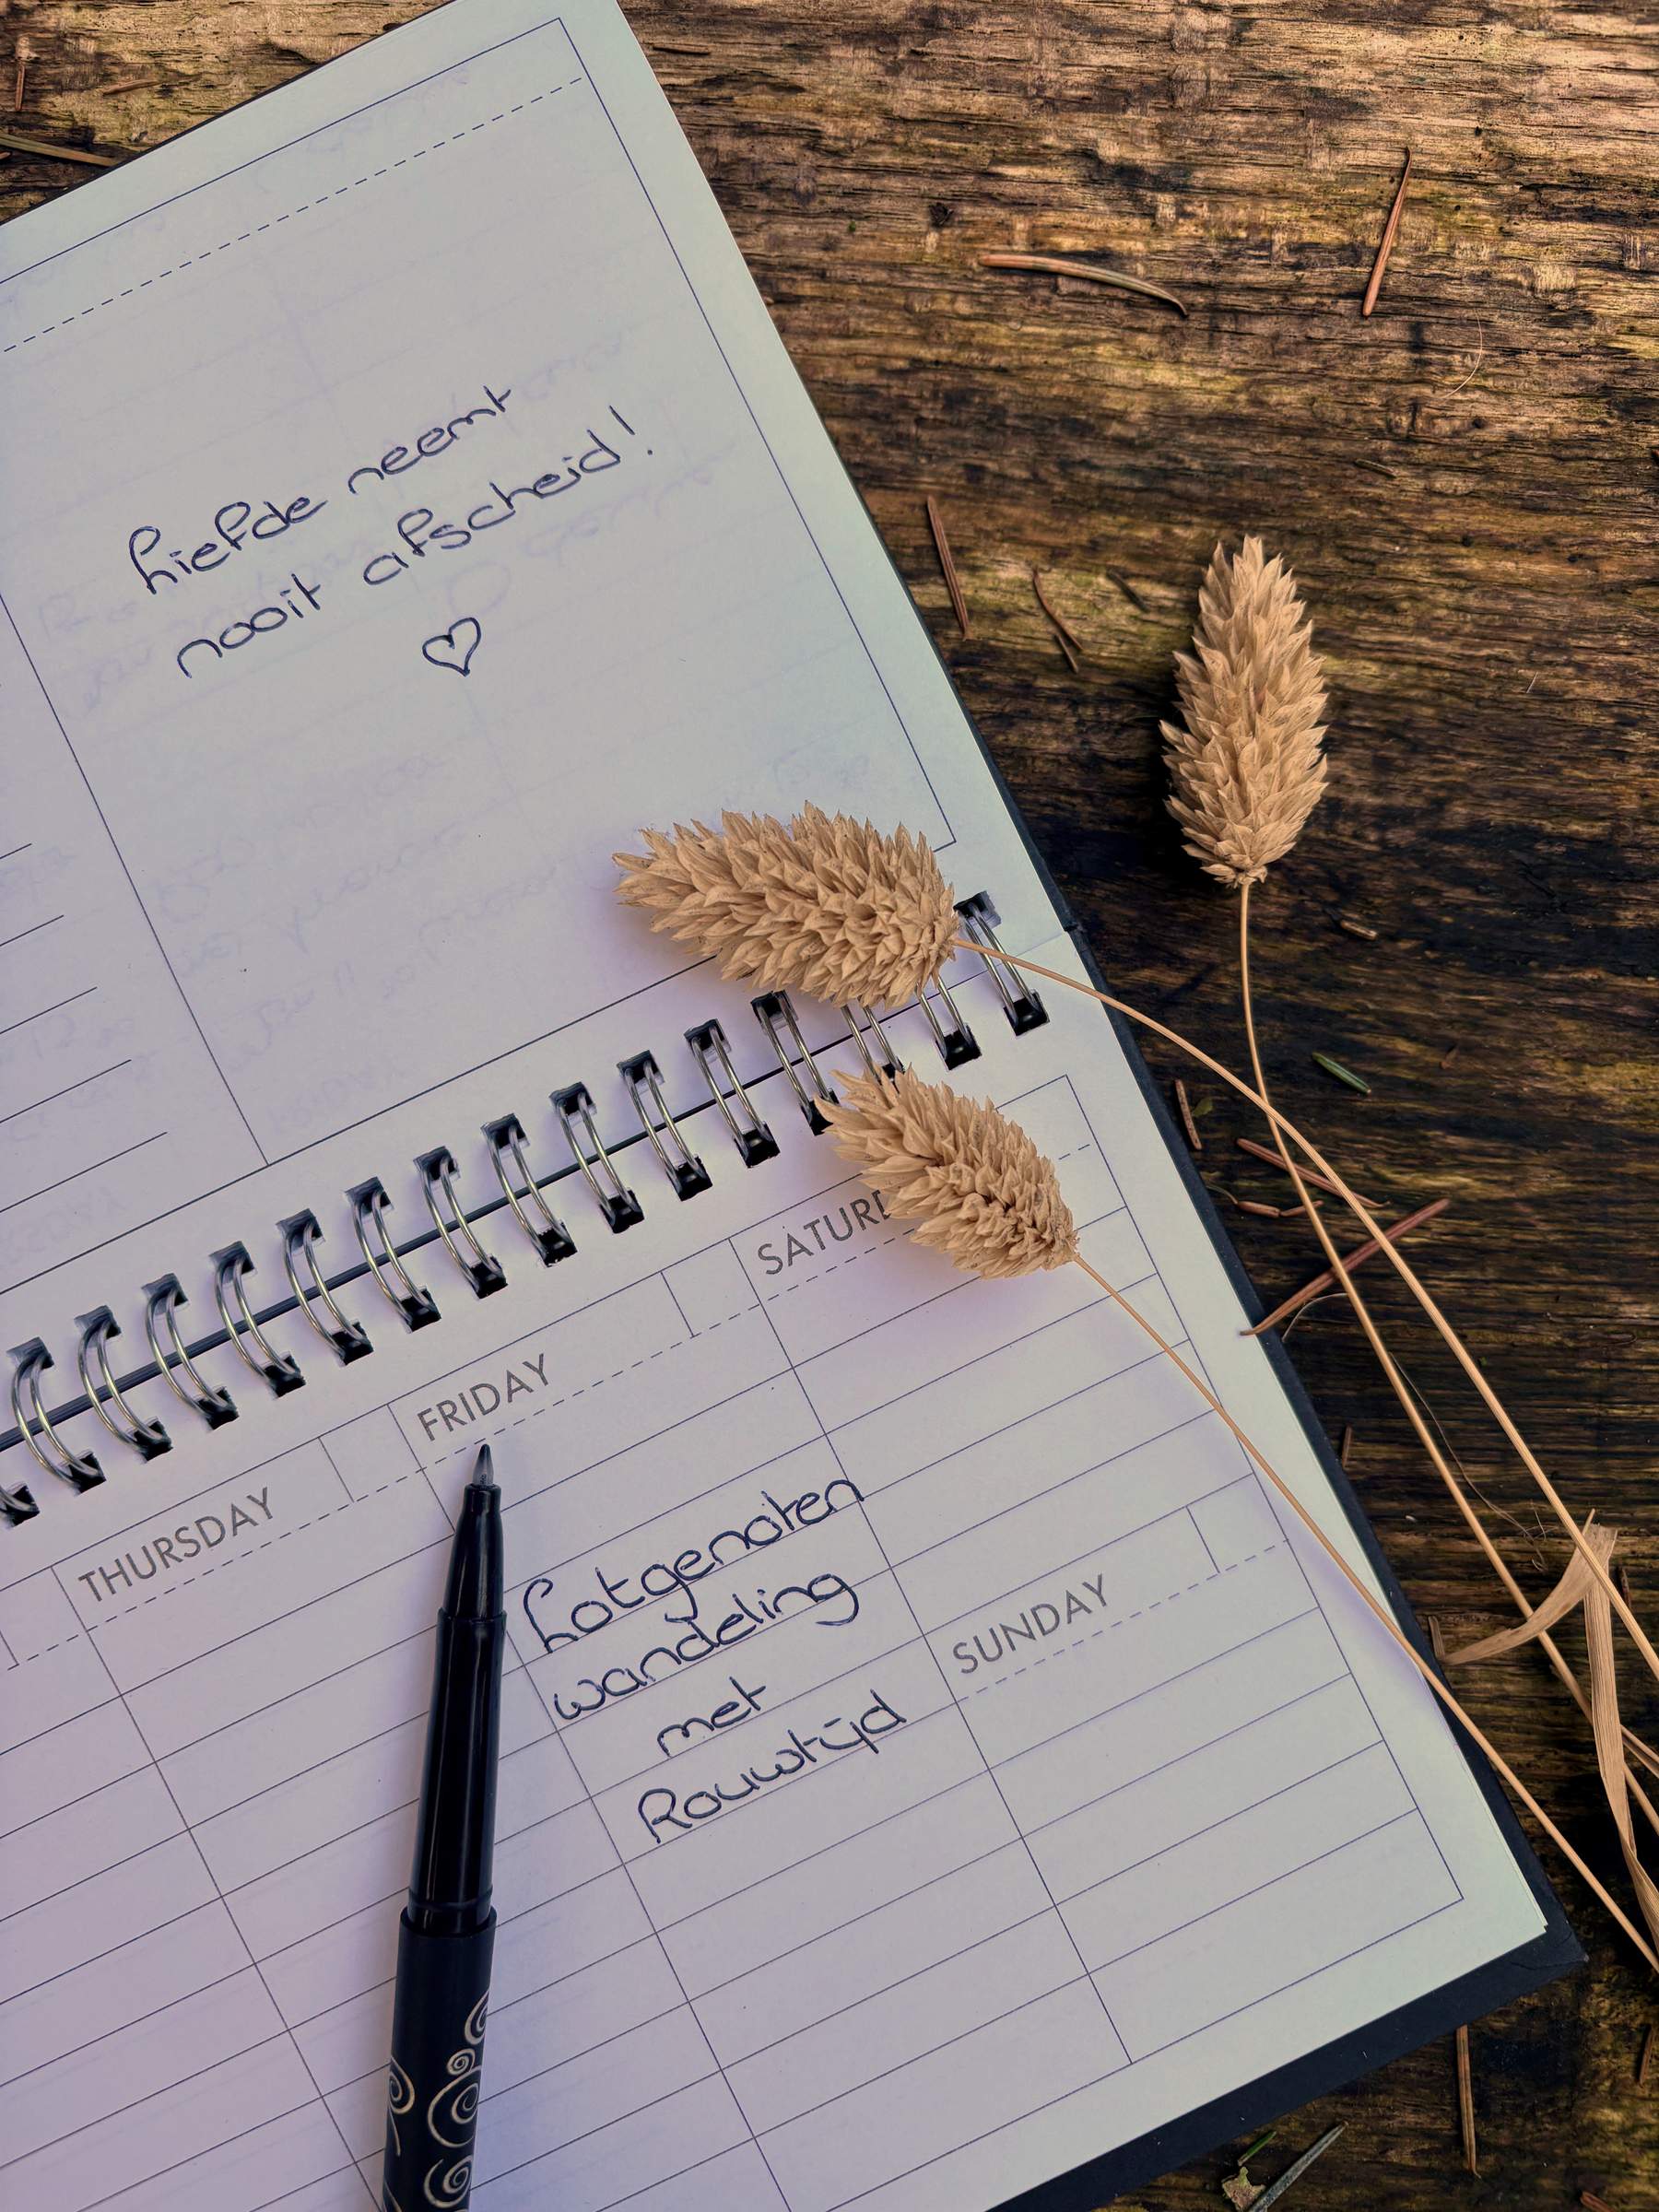 Liefde neemt
nooit afscheid!
♡
THURSDAY
FRIDAY
SATURD
SUNDAY
Lotgenoten
wandeling
met
Rouwtijd